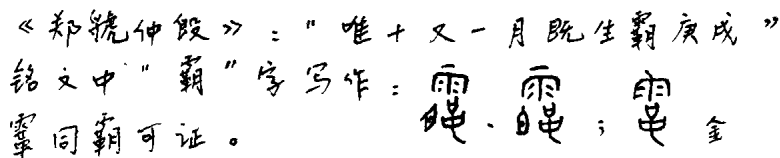 《郑虢仲殷》："唯十又一月既生霸庚戌"
铭文中"霸"字写作：、；金
同霸可证。